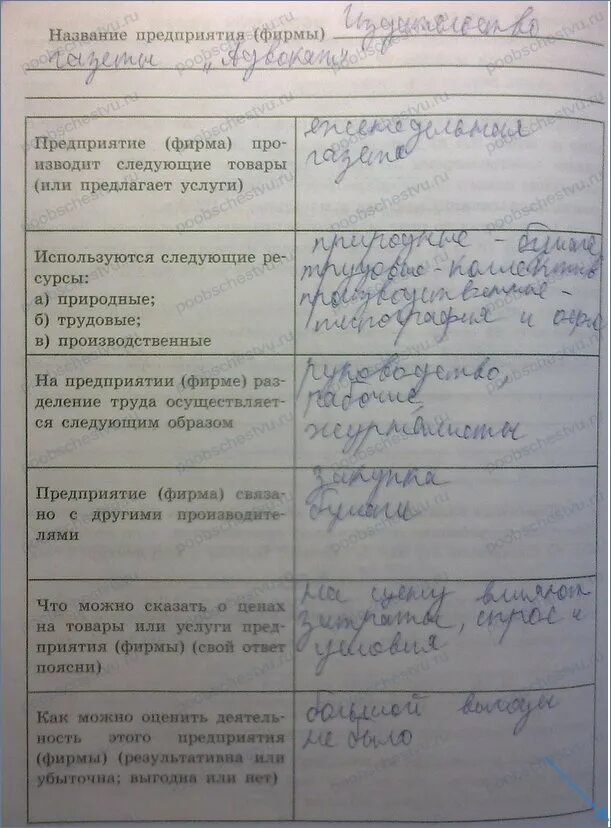 Название предприятия (фирмы) Издательство
газеты "Адвокат"
Предприятие (фирма) про-
изводит следующие товары
(или предлагает услуги)
еженедельная
газета
Используются следующие ре-
сурсы:
а) природные;
б) трудовые;
в) производственные
природные - бумага
трудовые - коллектив
производственные -
типография и офис
На предприятии (фирме) раз-
деление труда осуществляет-
ся следующим образом
руководство,
рабочие
журналисты
Предприятие (фирма) связа-
но с другими производите-
лями
закупка
бумаги
Что можно сказать о ценах
на товары или услуги пред-
приятия (фирмы) (свой ответ
поясни)
на цену влияют
затраты, спрос и
условия
Как можно оценить деятель-
ность этого предприятия
(фирмы) (результативна или
убыточна; выгодна или нет)
большой выгоды
не было
poobschestvu.ru